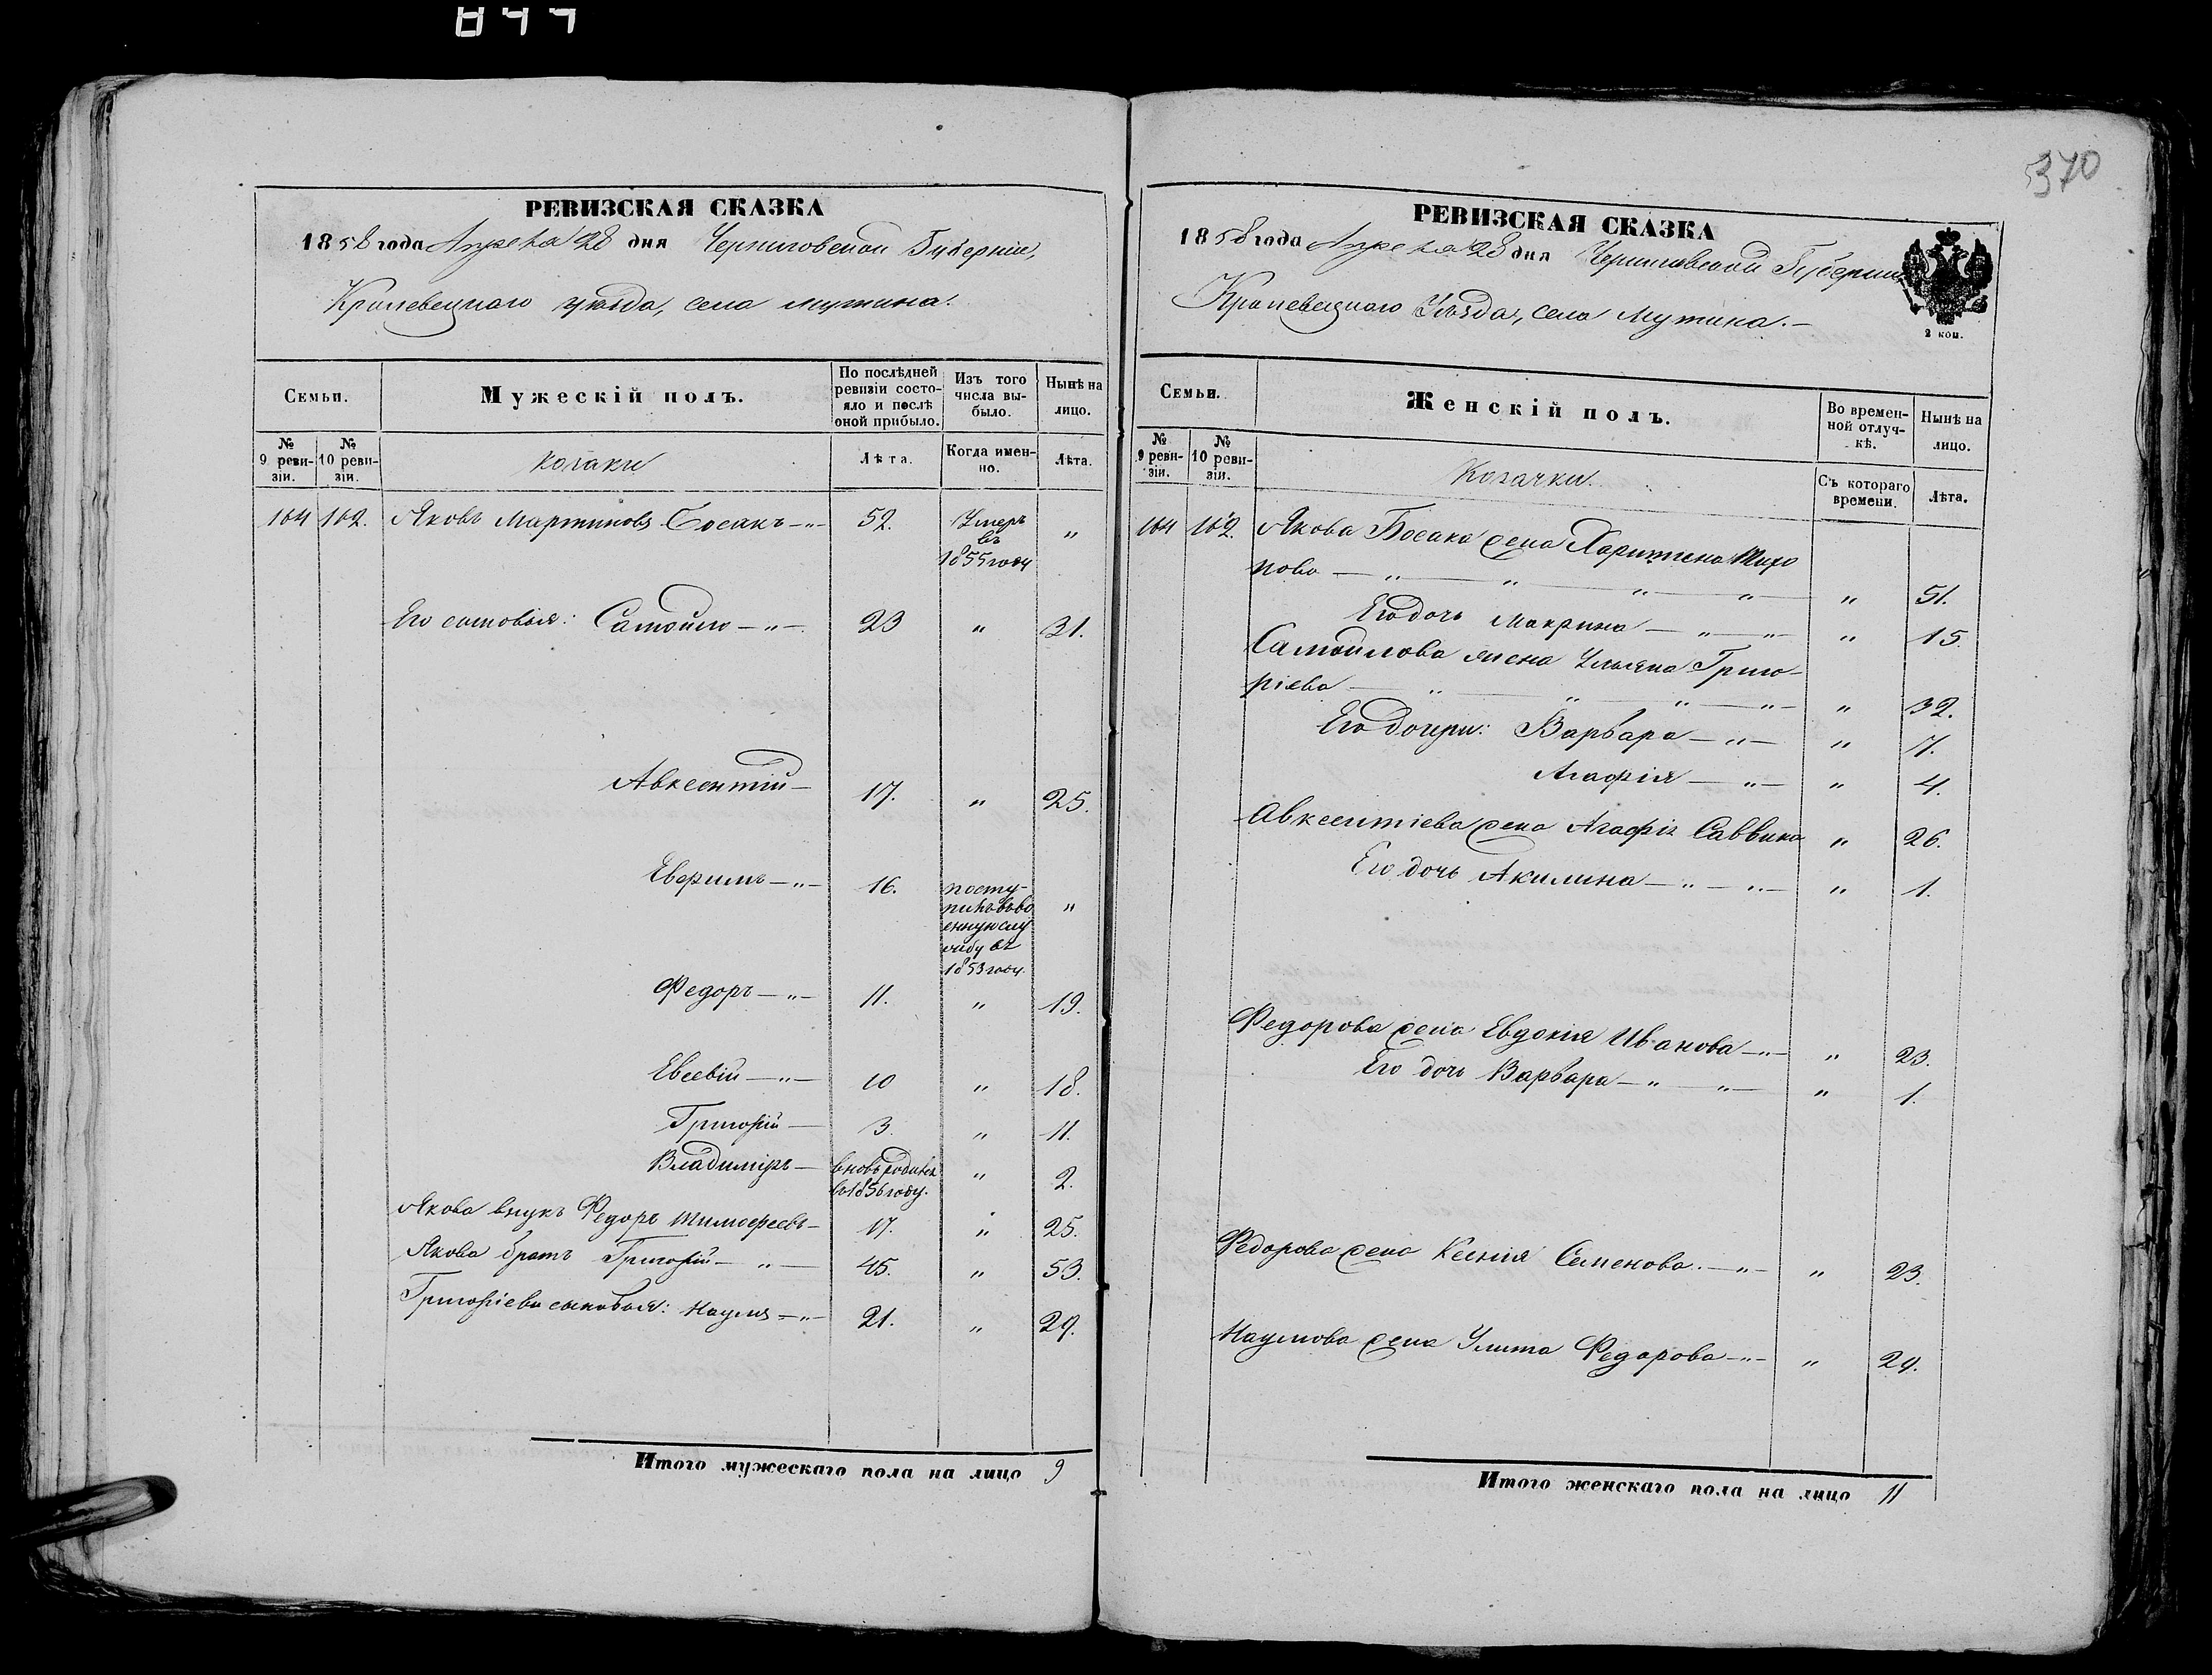 370
РЕВИЗСКАЯ СКАЗКА
1858 года Апреля 28 дня Черниговской Губерніи,
Кролевецкаго уезда, села Мутина.
Семьи.
Мужескій полъ.
По послѣдней ревизіи состо-
яло и послѣ оной прибыло.
Изъ того числа вы-
было.
Нынѣ на лицо.
№ 9 реви-
зіи.
№ 10 реви-
зіи.
козаки
Лѣта.
Когда имен-
но.
Лѣта.
164 162. Яковъ Мартиновъ Босакъ —"— 52. Умеръ въ 1855 году "
Его сыновья: Самойло —"— 23 " 31.
Авксентій — 17. " 25.
Евфимъ —"— 16. посту-
пилъ въ во
енную слу
жбу въ
1853 году. "
Федоръ —"— 11. " 19.
Евсевій —"— 10 " 18.
Григорій — 3. " 11.
Владиміръ — вновь родился
въ 1856 году. " 2.
Якова внукъ Федоръ Тимофеевъ — 17. " 25.
Якова братъ Григорій — " — 45. " 53.
Григоріевы сыновья: Наумъ —"— 21. " 29.
Итого мужескаго пола на лицо 9
РЕВИЗСКАЯ СКАЗКА
1858 года Апреля 28 дня Черниговской Губерніи
Кролевецкаго Уѣзда, села Мутина.—
2 коп.
Семьи.
Женскій полъ.
Во времен-
ной отлуч-
кѣ.
Нынѣ на лицо.
№ 9 реви-
зіи.
№ 10 реви-
зіи.
Козачки.
Съ котораго времени.
Лѣта.
164 162. Якова Босака жена Харитина Миро
нова — " — " — " — " — " 51.
Его дочь Макрина — " — " — " 15.
Самойлова жена Ульяна Григо-
ріева — " — " — " — " — " 32.
Его дочери: Варвара —"— " 7.
Агафія — "— " 4.
Авксентіева жена Агафія Саввина " 26.
Его дочь Акилина — " — " — " 1.
Федорова жена Евдокія Иванова —"— " 23.
Его дочь Варвара — " — " — " 1.
Федорова жена Ксенія Семенова. —"— " 23.
Наумова жена Улита Федорова —"— " 29.
Итого женскаго пола на лицо 11